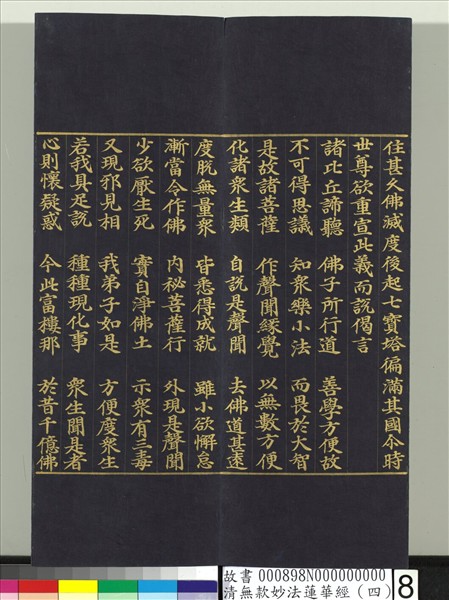 住甚久佛滅度後起七寶塔徧滿其國介時
世尊欲重宣此義而說偈言
諸比丘諦聽 佛子所行道 善學方便故
不可得思議 知衆樂小法 而畏於大智
是故諸菩薩 作聲聞緣覺 以無數方便
化諸衆生類 自說是聲聞 去佛道甚遠
度脫無量衆 皆悉得成就 雖小欲懈怠
漸當令作佛 內祕菩薩行 外現是聲聞
少欲厭生死 實自淨佛土 示衆有三毒
又現邪見相 我弟子如是 方便度衆生
若我具足說 種種現化事 衆生聞是者
心則懷疑惑 今此富樓那 於昔千億佛
故書 000898N000000000
清無款妙法蓮華經 (四)
8